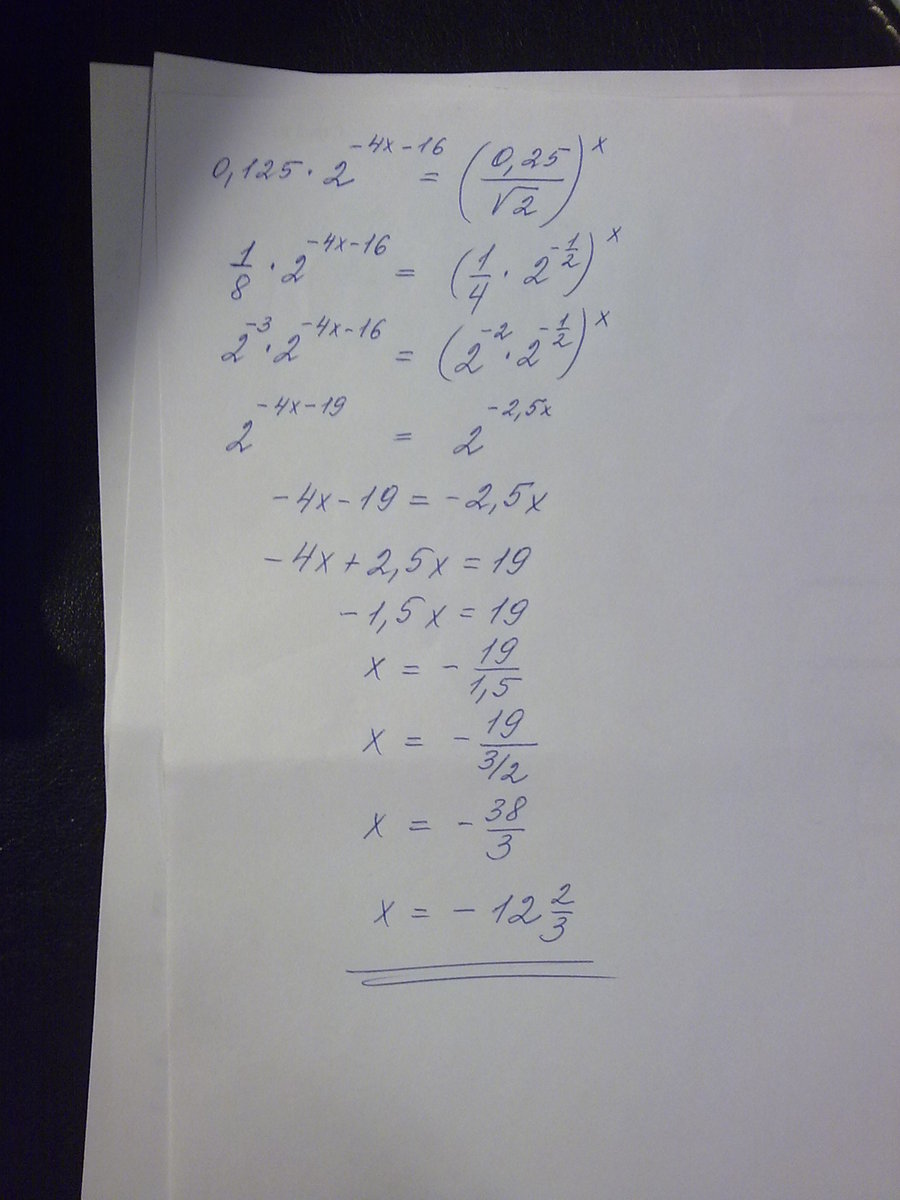 0,125 · 2^(-4x-16) = (0,25/√2)^x
1/8 · 2^(-4x-16) = (1/4 · 2^(-1/2))^x
2^(-3) · 2^(-4x-16) = (2^(-2) · 2^(-1/2))^x
2^(-4x-19) = 2^(-2,5x)
-4x-19 = -2,5x
-4x+2,5x = 19
-1,5x = 19
x = -19/1,5
x = -19/(3/2)
x = -38/3
x = -12 2/3